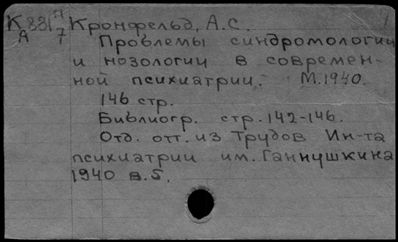 К 8817 Кронфельд, А.С.
А 7 Проблемы синдромологии
и нозологии в современ-
ной психиатрии. М. 1940.
146 стр.
Библиогр. стр. 142-146.
Отд. отт. из Трудов Ин-та
психиатрии им. Ганнушкина
1940 в. 5.